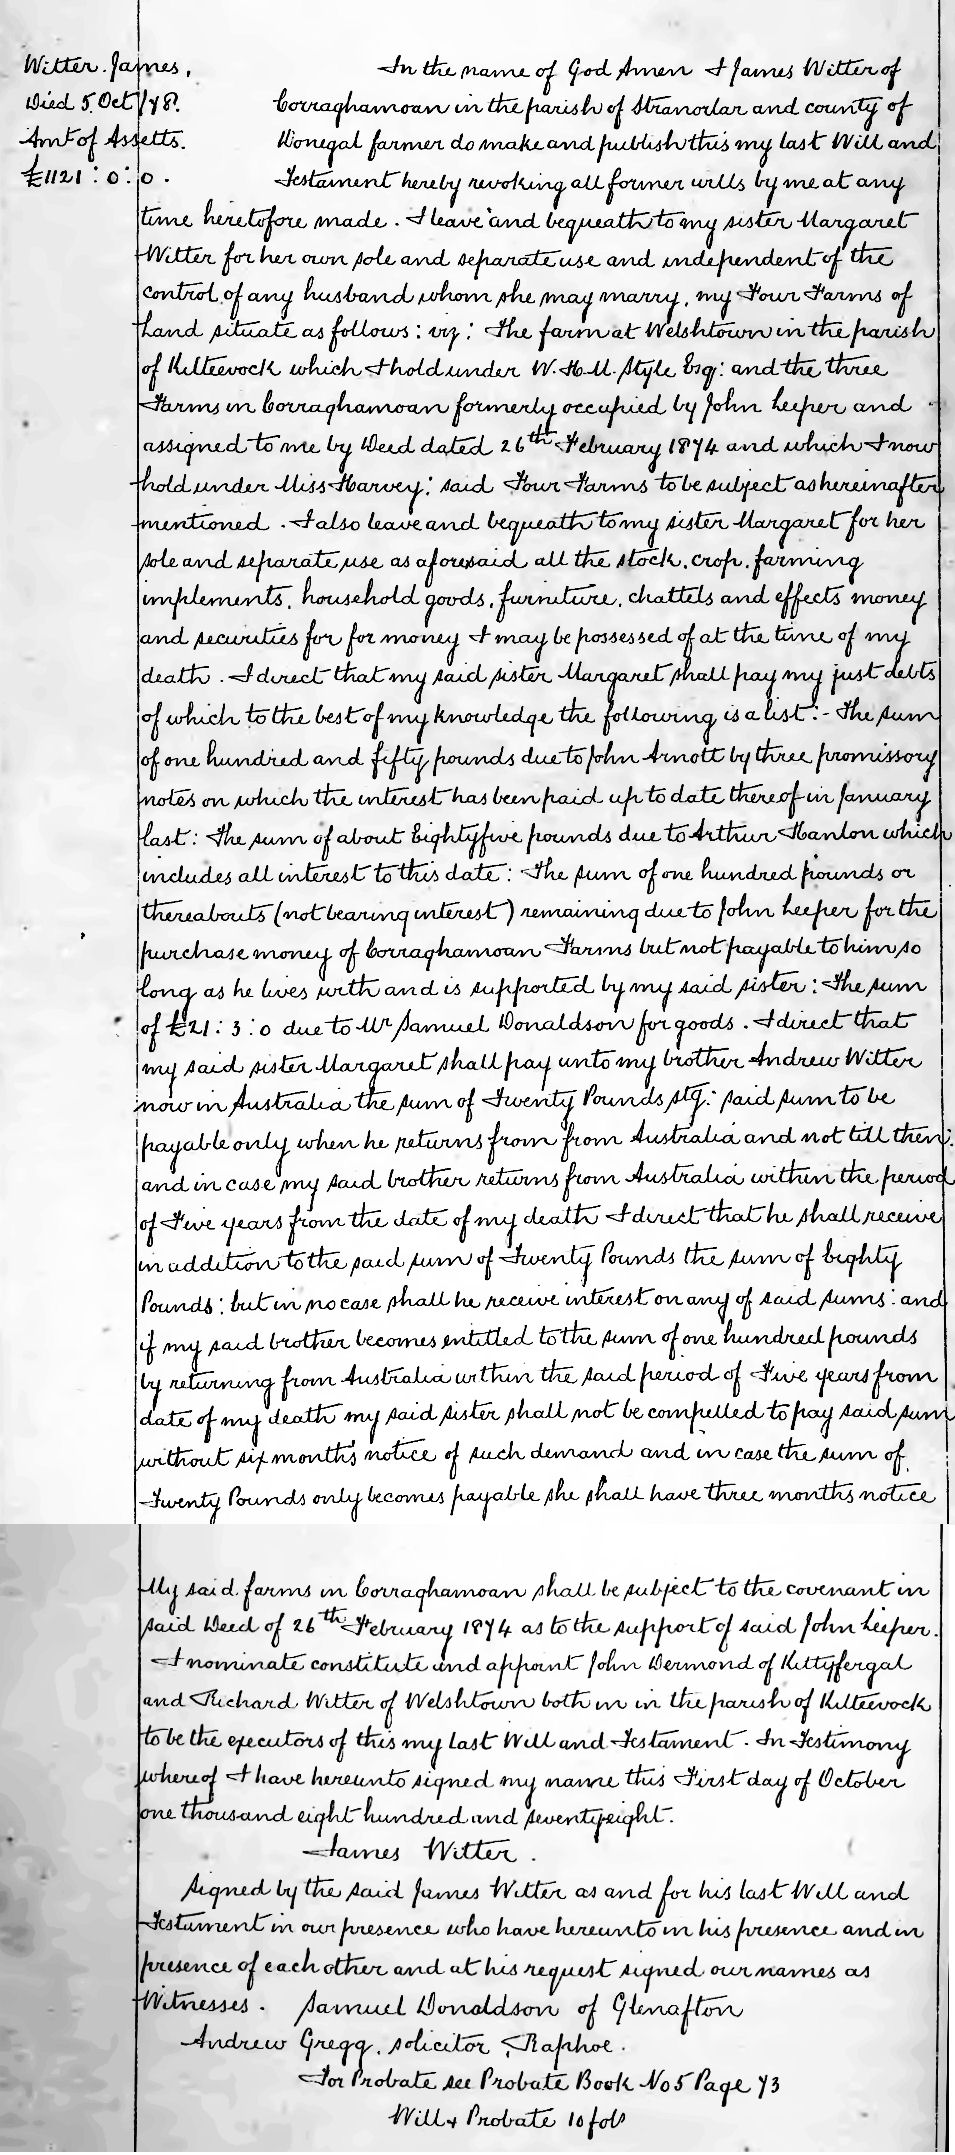 Witter James,
Died 5 Oct /78.
Amt of Assetts.
£1121 : 0 : 0.
In the name of God Amen I James Witter of
Corraghamoan in the parish of Stranorlar and county of
Donegal farmer do make and publish this my last Will and
Testament hereby revoking all former wills by me at any
time heretofore made. I leave and bequeath to my sister Margaret
Witter for her own sole and separate use and independent of the
control of any husband whom she may marry, my Four Farms of
Land situate as follows: viz: The farm at Welshtown in the parish
of Kilteevock which I hold under W. H. M. Style Esq: and the three
Farms in Corraghamoan formerly occupied by John Leeper and
assigned to me by Deed dated 26th February 1874 and which I now
hold under Miss Harvey: said Four Farms to be subject as hereinafter
mentioned. I also leave and bequeath to my sister Margaret for her
sole and separate use as aforesaid all the stock, crop, farming
implements, household goods, furniture, chattels and effects money
and securities for for money I may be possessed of at the time of my
death. I direct that my said sister Margaret shall pay my just debts
of which to the best of my knowledge the following is a list:- The sum
of one hundred and fifty pounds due to John Arnott by three promissory
notes on which the interest has been paid up to date thereof in January
last: The sum of about Eightyfive pounds due to Arthur Hanlon which
includes all interest to this date: The sum of one hundred pounds or
thereabouts (not bearing interest) remaining due to John Leeper for the
purchase money of Corraghamoan Farms but not payable to him so
long as he lives with and is supported by my said sister: The sum
of £21 : 3 : 0 due to Mr Samuel Donaldson for goods. I direct that
my said sister Margaret shall pay unto my brother Andrew Witter
now in Australia the sum of Twenty Pounds stg: said sum to be
payable only when he returns from from Australia and not till then:
and in case my said brother returns from Australia within the period
of Five years from the date of my death I direct that he shall receive
in addition to the said sum of Twenty Pounds the sum of Eighty
Pounds: but in no case shall he receive interest on any of said sums: and
if my said brother becomes entitled to the sum of one hundred pounds
by returning from Australia within the said period of Five years from
date of my death my said sister shall not be compelled to pay said sum
without six months notice of such demand and in case the sum of
Twenty Pounds only becomes payable she shall have three months notice
My said farms in Corraghamoan shall be subject to the covenant in
said Deed of 26th February 1874 as to the support of said John Leeper.
I nominate constitute and appoint John Dermond of Kittyfergal
and Richard Witter of Welshtown both in in the parish of Kilteevock
to be the executors of this my last Will and Testament. In Testimony
whereof I have hereunto signed my name this First day of October
one thousand eight hundred and seventyeight.
James Witter.
Signed by the said James Witter as and for his last Will and
Testament in our presence who have hereunto in his presence and in
presence of each other and at his request signed our names as
Witnesses. Samuel Donaldson of Glenafton
Andrew Gregg, solicitor, Raphoe.
For Probate see Probate Book No 5 Page 73
Will & Probate 10 fols